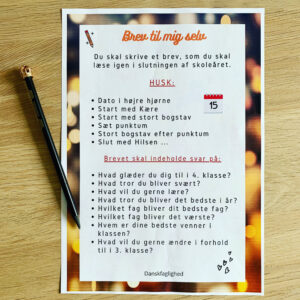 Brev til mig selv
Du skal skrive et brev, som du skal
læse igen i slutningen af skoleåret.
HUSK:
• Dato i højre hjørne
• Start med Kære
• Start med stort bogstav
• Sæt punktum
• Stort bogstav efter punktum
• Slut med Hilsen ...
15
Brevet skal indeholde svar på:
• Hvad glæder du dig til i 4. klasse?
• Hvad tror du bliver svært?
• Hvad vil du gerne lære?
• Hvad tror du bliver det bedste i år?
• Hvilket fag bliver dit bedste fag?
• Hvilket fag bliver det værste?
• Hvem er dine bedste venner i
klassen?
• Hvad vil du gerne ændre i forhold
til i 3. klasse?
Danskfaglighed